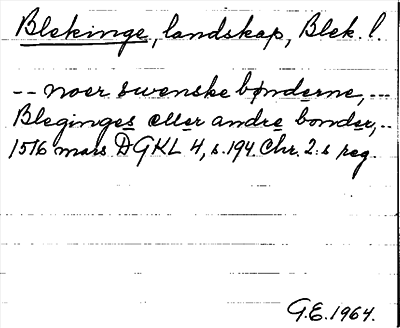 Blekinge, landskap, Blek. l.
-- noer swenske bønderne, ...
Bleginges eller andre bonder, ..
1516 mars DGKL 4, s. 194 Chr. 2:s reg.
G.E. 1964.